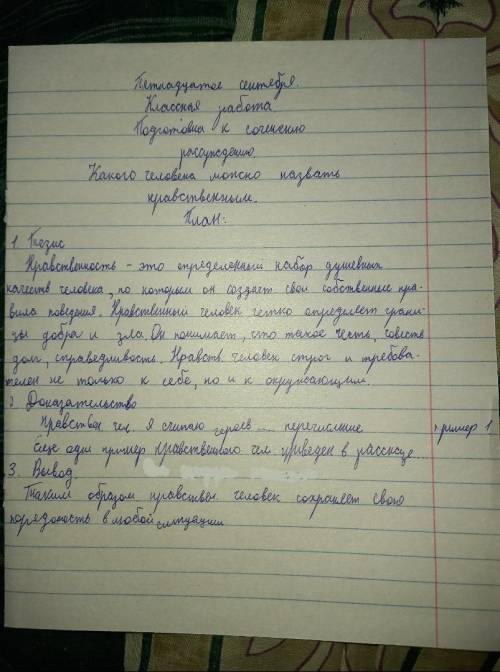 Пятнадцатое сентября.
Классная работа
Подготовка к сочинению
рассуждению.
Какого человека можно назвать
нравственным.
План:
1. Тезис
Нравственность - это определенный набор душевных
качеств человека, по которым он создает свои собственные пра-
вила поведения. Нравственный человек четко определяет грани-
цы добра и зла. Он понимает, что такое честь, совесть
долг, справедливость. Нравств. человек строг и требова-
телен не только к себе, но и к окружающим.
2. Доказательство
Нравствен чел. я считаю героев .... перечисление пример 1
Еще один пример нравственного чел приведен в рассказе...
3. Вывод.
Таким образом нравствен человек сохраняет свою
порядоность в любой ситуации